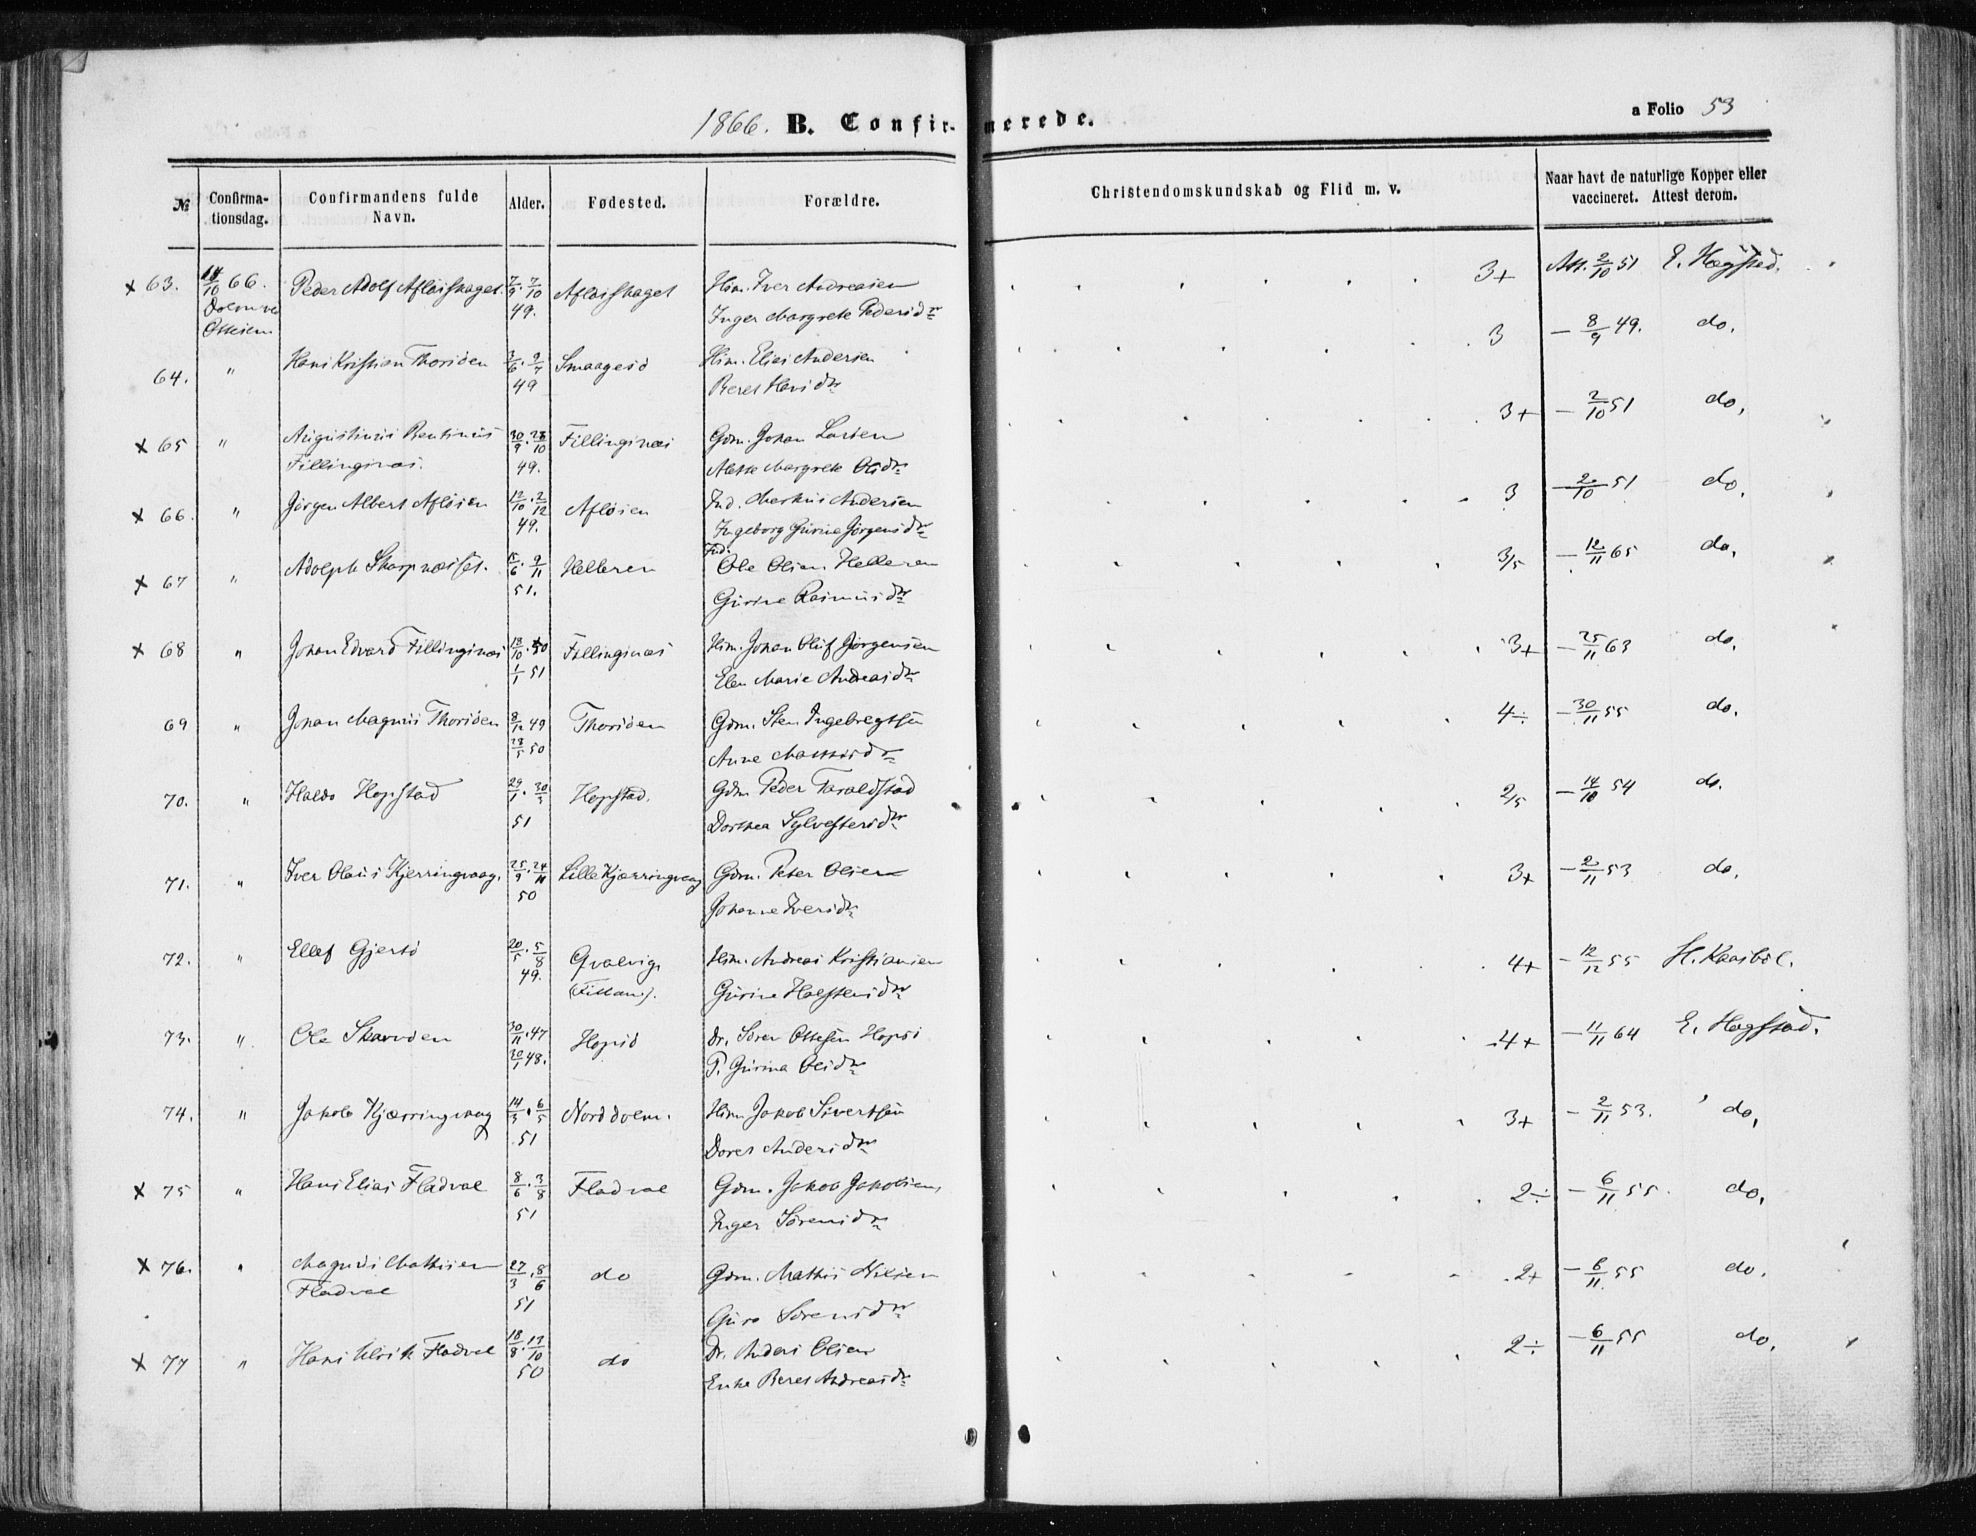 1866. B. Confirmerede. a Folio 53
№ Confirmationsdag. Confirmandens fulde Navn. Alder. Fødested. Forældre. Christendomskundskab og Flid m. v. Naar havt de naturlige Kopper eller vaccineret. Attest derom.
x 63. 14/10 66. Peder Adolf Afløiskaget. 7/9. 7/10 Afløiskaget Him. Iver Andreasen 3+ Att. 2/10 51 E. Hægstad.
Dolm ved 49. Inger Margrete Pedersdr
Ottesen
64. " Hans Kristian Thorsöen 3/6. 9/7 Smaagesö Him. Elias Andersen 3 - 8/9 49. do.
49 Beret Hansdr
x 65 " Augustinus Bentinus 30/9. 28/10 Fillingsnæs Gdm. Johan Larsen 3+ - 2/10 51 do.
Fillingsnæs. 49. Mette Margrete Olsdr
x 66. " Jörgen Albert Afløsien 12/10. 2/12 Afløsien Ind. Markus Andersen 3 - 2/10 51 do.
49. Ingeborg Gurine Jörgensdr
x 67 " Adolph Skarpnæsset. 15/6. 9/11 Helleren Ind. Ole Olsen Helleren 3/5 - 12/11 65 do.
51. Gurine Rasmusdr
x 68 " Johan Edvard Fillingsnæs 18/10. 50 Fillingsnæs Him. Johan Oluf Jørgensen 3+ - 25/11 63 do.
1/1 51 Elen Marie Andreasdr
69 " Johan Magnus Thorsöen 8/12 49 Thorsöen Gdm. Sten Ingebregtsen 4÷ - 30/11 55 do.
28/5 50 Anne Mathisdr
70. " Haldo Hopstad 29/1. 30/3 Hopstad. Gdm Peder Taraldstad 2/5 - 14/10 54 do.
51 Dorthea Sylvestersdr
71. " Iver Olaus Kjerringvaag. 25/9. 24/11 Lille Kjærringvaag Gdm. Peter Olsen 3+ - 2/11 53 do.
50 Johanne Iversdr
72. " Ellef Gjertö 20/5. 5/8 Qvalvig Him. Andreas Kristiansen 4+ - 12/12 55 H. Kaasböl.
49. (Fillan). Gurine Holstensdr
73. " Ole Skarvöen 30/11. 47 Hopsö Dr. Sören Ottesen Hopsö 4+ - 11/11 64 E. Hegstad.
30/1 48. P. Gurina Olsdr
74. " Jakob Kjærringvaag 14/3. 6/5 Norddolm. Him Jakob Sivertsen 3+ - 2/11 53. do.
51 Doret Andersdr
x 75 " Hans Elias Fladval 8/6. 3/8 Fladval Gdm. Jakob Jakobsen 2÷ - 6/11 55. do.
51 Inger Sörensdr
x 76. " Magnus Mathisen 27/3. 8/6 do Gdm. Mathis Nilsen 2+ - 6/11 55 do.
Fladval 51 Guro Sörensdr
x 77 " Hans Ulrik Fladval 18/8. 13/10 do Dr. Anders Olsen 2÷ - 6/11 55 do.
50 Enke Beret Andreasdr